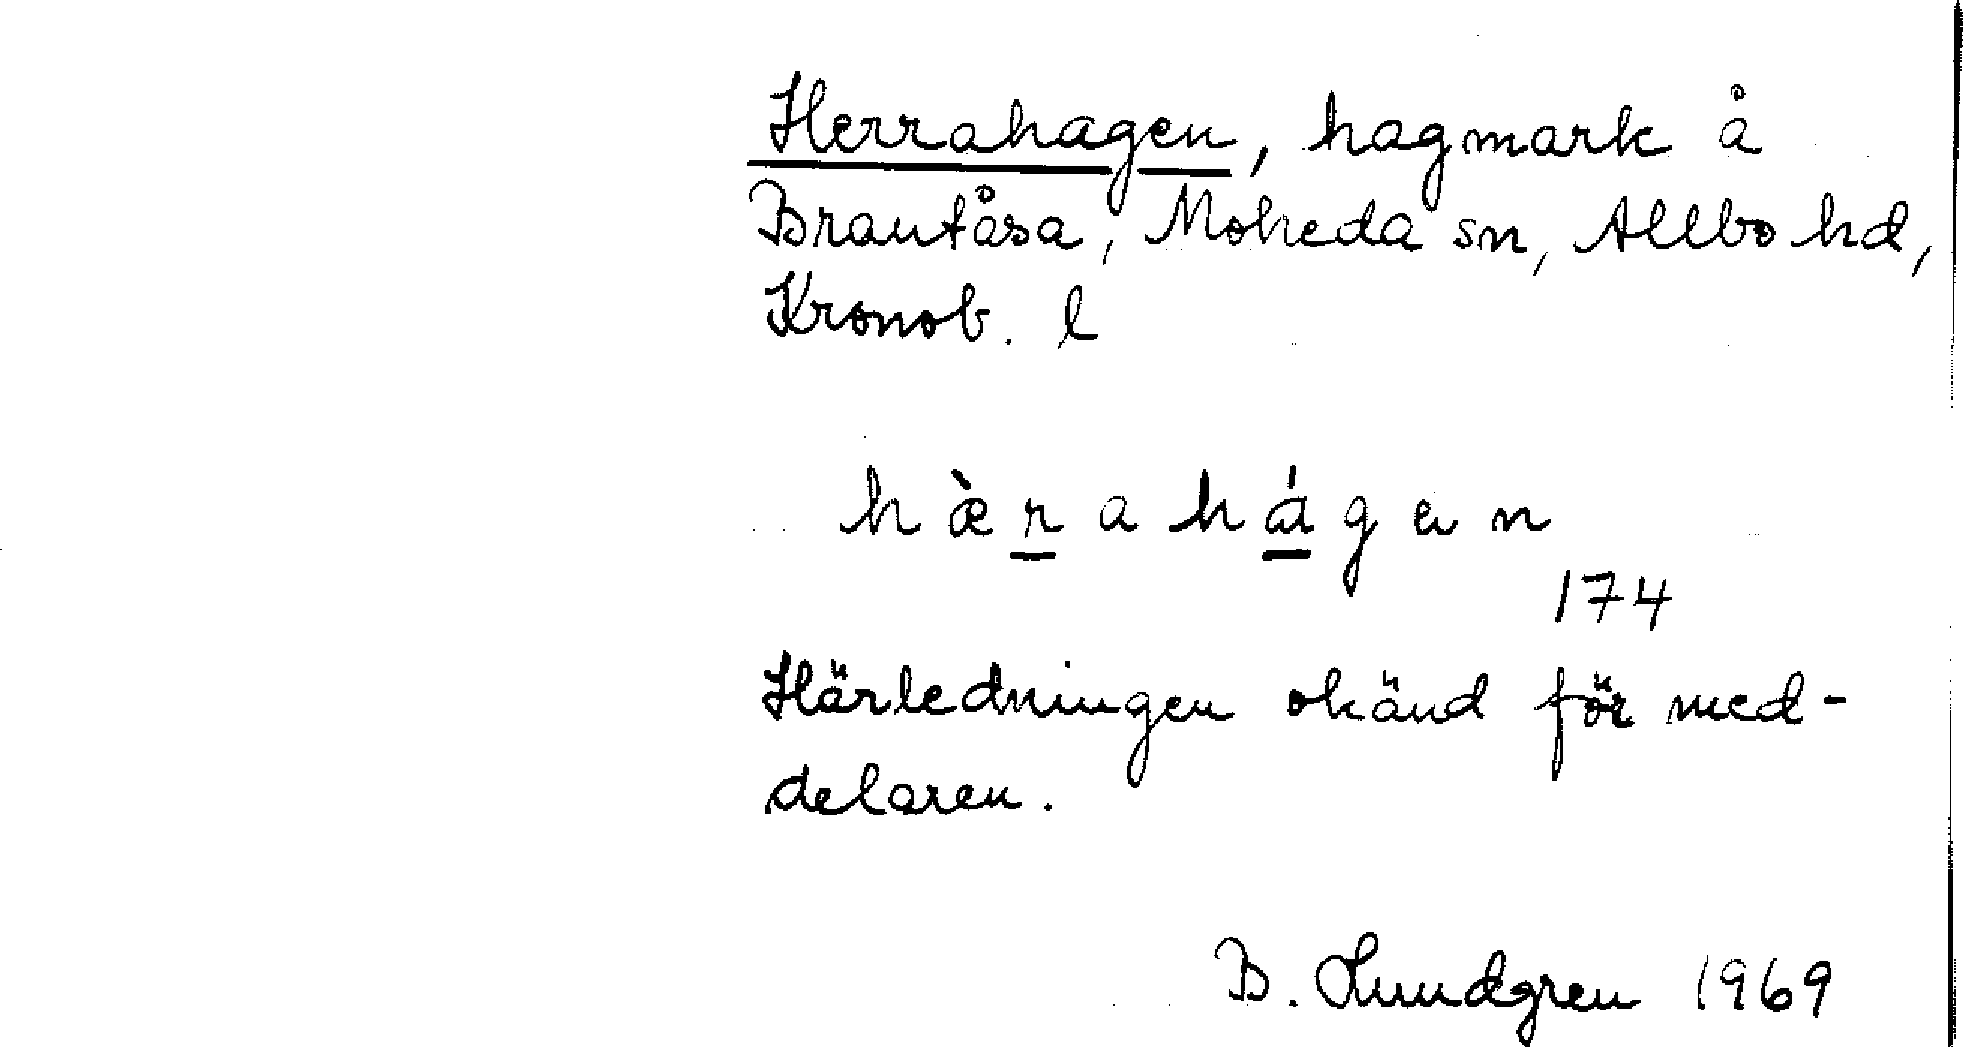 Herrahagen, hagmark å
Brantåsa, Moheda sn, Allbo hd,
Kronob. l
h æ̀ r a h á g ə n
174
Härledningen okänd för med-
delaren.
B. Lundgren 1969